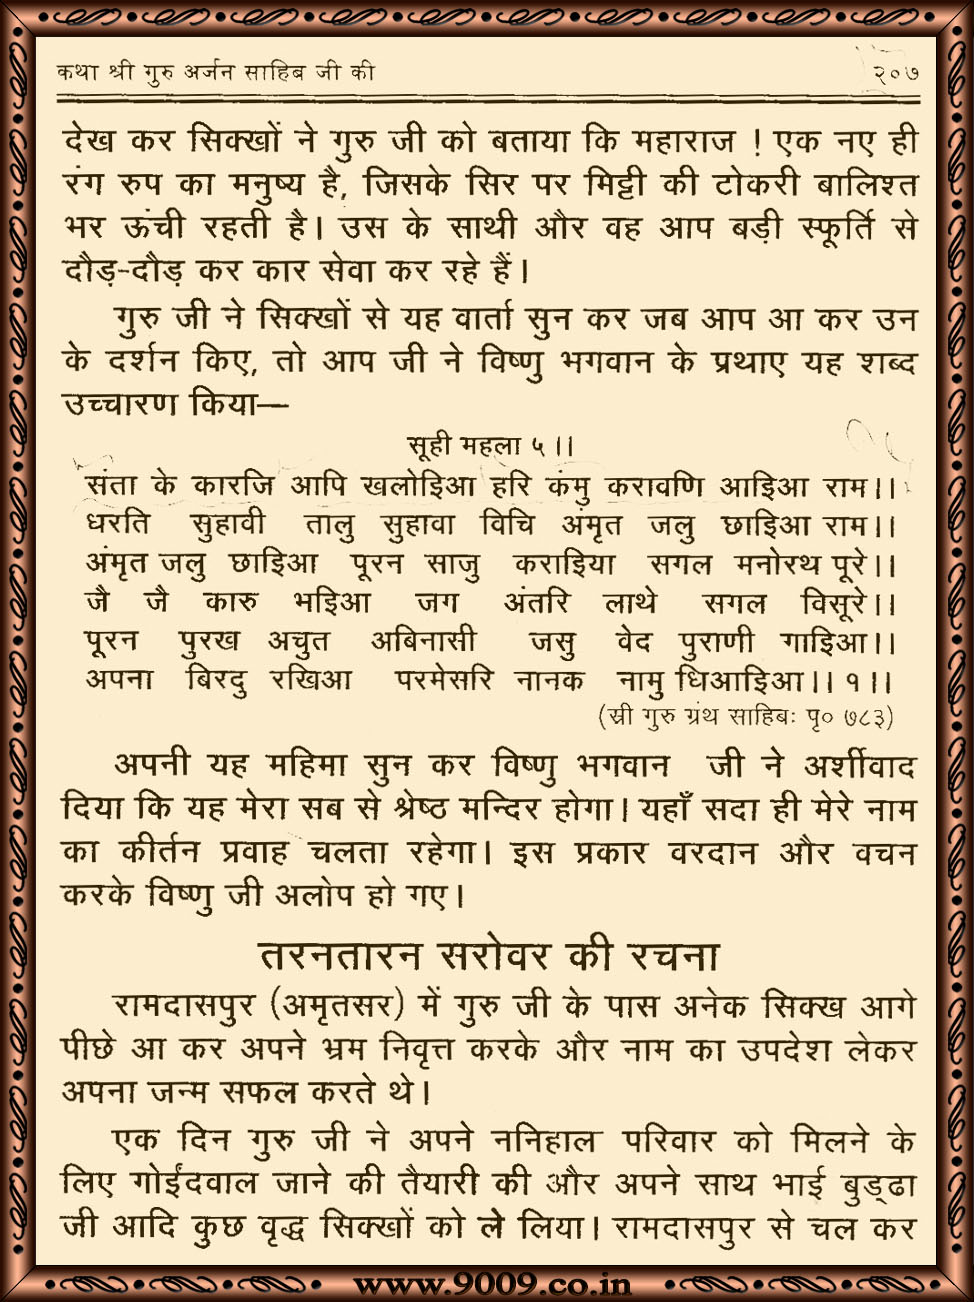 कथा श्री गुरु अर्जन साहिब जी की २०७
देख कर सिक्खों ने गुरु जी को बताया कि महाराज ! एक नए ही
रंग रुप का मनुष्य है, जिसके सिर पर मिट्टी की टोकरी बालिश्त
भर ऊंची रहती है। उस के साथी और वह आप बड़ी स्फूर्ति से
दौड़-दौड़ कर कार सेवा कर रहे हैं।
गुरु जी ने सिक्खों से यह वार्ता सुन कर जब आप आ कर उन
के दर्शन किए, तो आप जी ने विष्णु भगवान के प्रथाए यह शब्द
उच्चारण किया—
सूही महला ५ ।।
संता के कारजि आपि खलोइिआ हरि कंमु करावणि आइिआ राम।।
धरति सुहावी तालु सुहावा विचि अंमृत जलु छाइिआ राम।।
अंमृत जलु छाइिआ पूरन साजु कराइिया सगल मनोरथ पूरे।।
जै जै कारु भइिआ जग अंतरि लाथे सगल विसूरे।।
पूरन पुरख अचुत अबिनासी जसु वेद पुराणी गाइिआ।।
अपना बिरदु रखिआ परमेसरि नानक नामु धिआइिआ।। १ ।।
(स्री गुरु ग्रंथ साहिबः पृ० ७८३)
अपनी यह महिमा सुन कर विष्णु भगवान जी ने अर्शीवाद
दिया कि यह मेरा सब से श्रेष्ठ मन्दिर होगा। यहाँ सदा ही मेरे नाम
का कीर्तन प्रवाह चलता रहेगा। इस प्रकार वरदान और वचन
करके विष्णु जी अलोप हो गए।
तरनतारन सरोवर की रचना
रामदासपुर (अमृतसर) में गुरु जी के पास अनेक सिक्ख आगे
पीछे आ कर अपने भ्रम निवृत्त करके और नाम का उपदेश लेकर
अपना जन्म सफल करते थे।
एक दिन गुरु जी ने अपने ननिहाल परिवार को मिलने के
लिए गोईंदवाल जाने की तैयारी की और अपने साथ भाई बुड्ढा
जी आदि कुछ वृद्ध सिक्खों को ले लिया। रामदासपुर से चल कर
www.9009.co.in